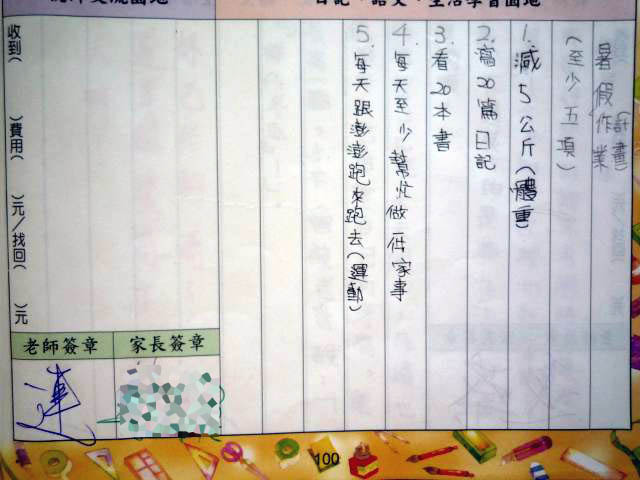 暑假作業(計畫)
(至少五項)
1.減5公斤(體重)
2.寫20篇日記
3.看20本書
4.每天至少幫忙做一件家事
5.每天跟澎澎跑來跑去(運動)
收到( )費用( )元/找回( )元
家長簽章
老師簽章
連
100